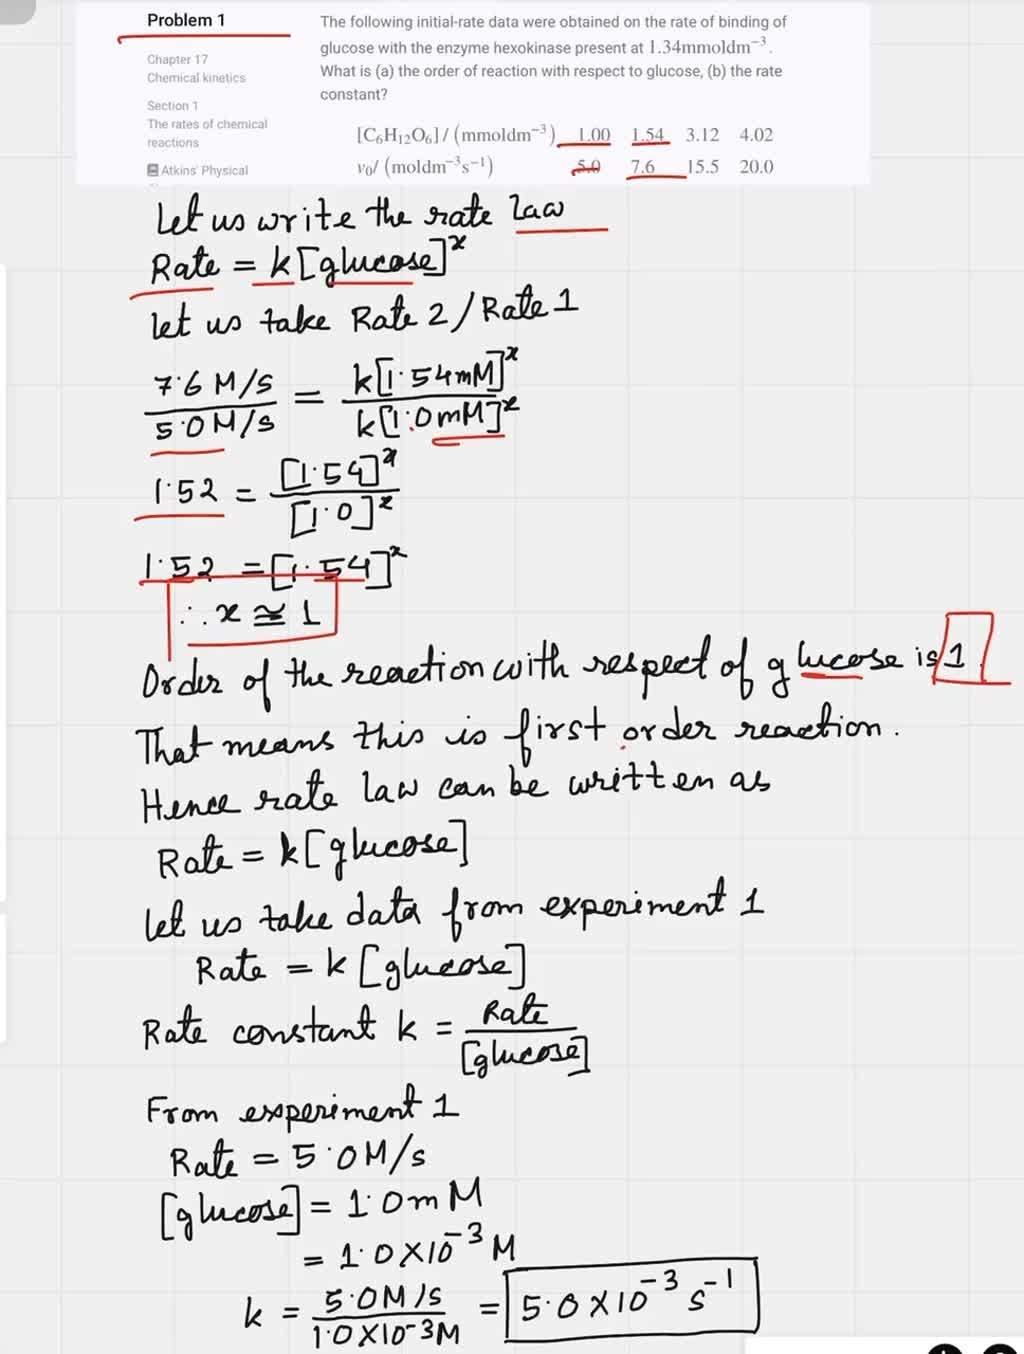 Problem 1
Chapter 17
Chemical kinetics
Section 1
The rates of chemical
reactions
Atkins' Physical
The following initial-rate data were obtained on the rate of binding of
glucose with the enzyme hexokinase present at 1.34mmoldm⁻³.
What is (a) the order of reaction with respect to glucose, (b) the rate
constant?
[C₆H₁₂O₆]/(mmoldm⁻³) 1.00 1.54 3.12 4.02
v₀/ (moldm⁻³s⁻¹) 5.0 7.6 15.5 20.0
Let us write the rate law
Rate = k[glucose]ˣ
let us take Rate 2/Rate 1
7.6 M/s / 5.0 M/s = k[1.54mM]ˣ / k[1.0mM]ˣ
1.52 = [1.54]ˣ / [1.0]ˣ
1.52 = [1.54]ˣ
∴ x ≅ 1
Order of the reaction with respect of glucose is 1.
That means this is first order reaction.
Hence rate law can be written as
Rate = k[glucose]
let us take data from experiment 1
Rate = k [glucose]
Rate constant k = Rate / [glucose]
From experiment 1
Rate = 5.0M/s
[glucose] = 1.0mM
= 1.0×10⁻³M
k = 5.0M/s / 1.0×10⁻³M = 5.0×10⁻³ s⁻¹